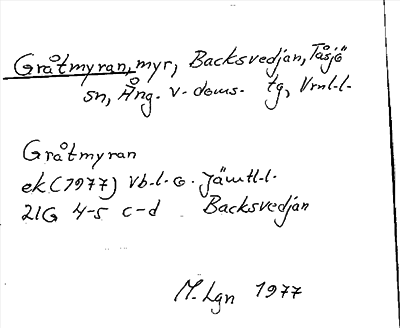 Gråtmyran, myr, Backsvedjan, Tåsjö
sn, Ång. v. doms. tg, Vrnl.l.
Gråtmyran
ek (1977) Vb.l. o. Jämtl.l.
21G 4-5 c-d Backsvedjan
M. Lgn 1977